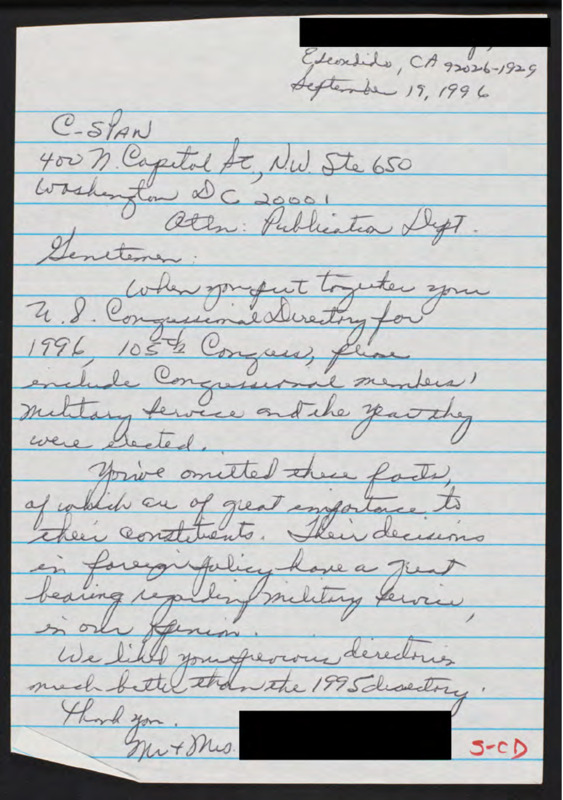 Escondido, CA 92026-1929
September 19, 1996
C-SPAN
400 N. Capitol St, NW. Ste 650
Washington DC 20001
Attn: Publication Dept.
Gentlemen:
When you put together your
U.S. Congressional Directory for
1996, 105th Congress, please
include Congressional members'
military service and the year they
were elected.
You've omitted these facts,
of which are of great importance to
their constituents. Their decisions
in foreign policy have a great
bearing regarding military service,
in our opinion.
We liked your previous directories
much better than the 1995 directory.
Thank you.
Mr + Mrs.
S-CD